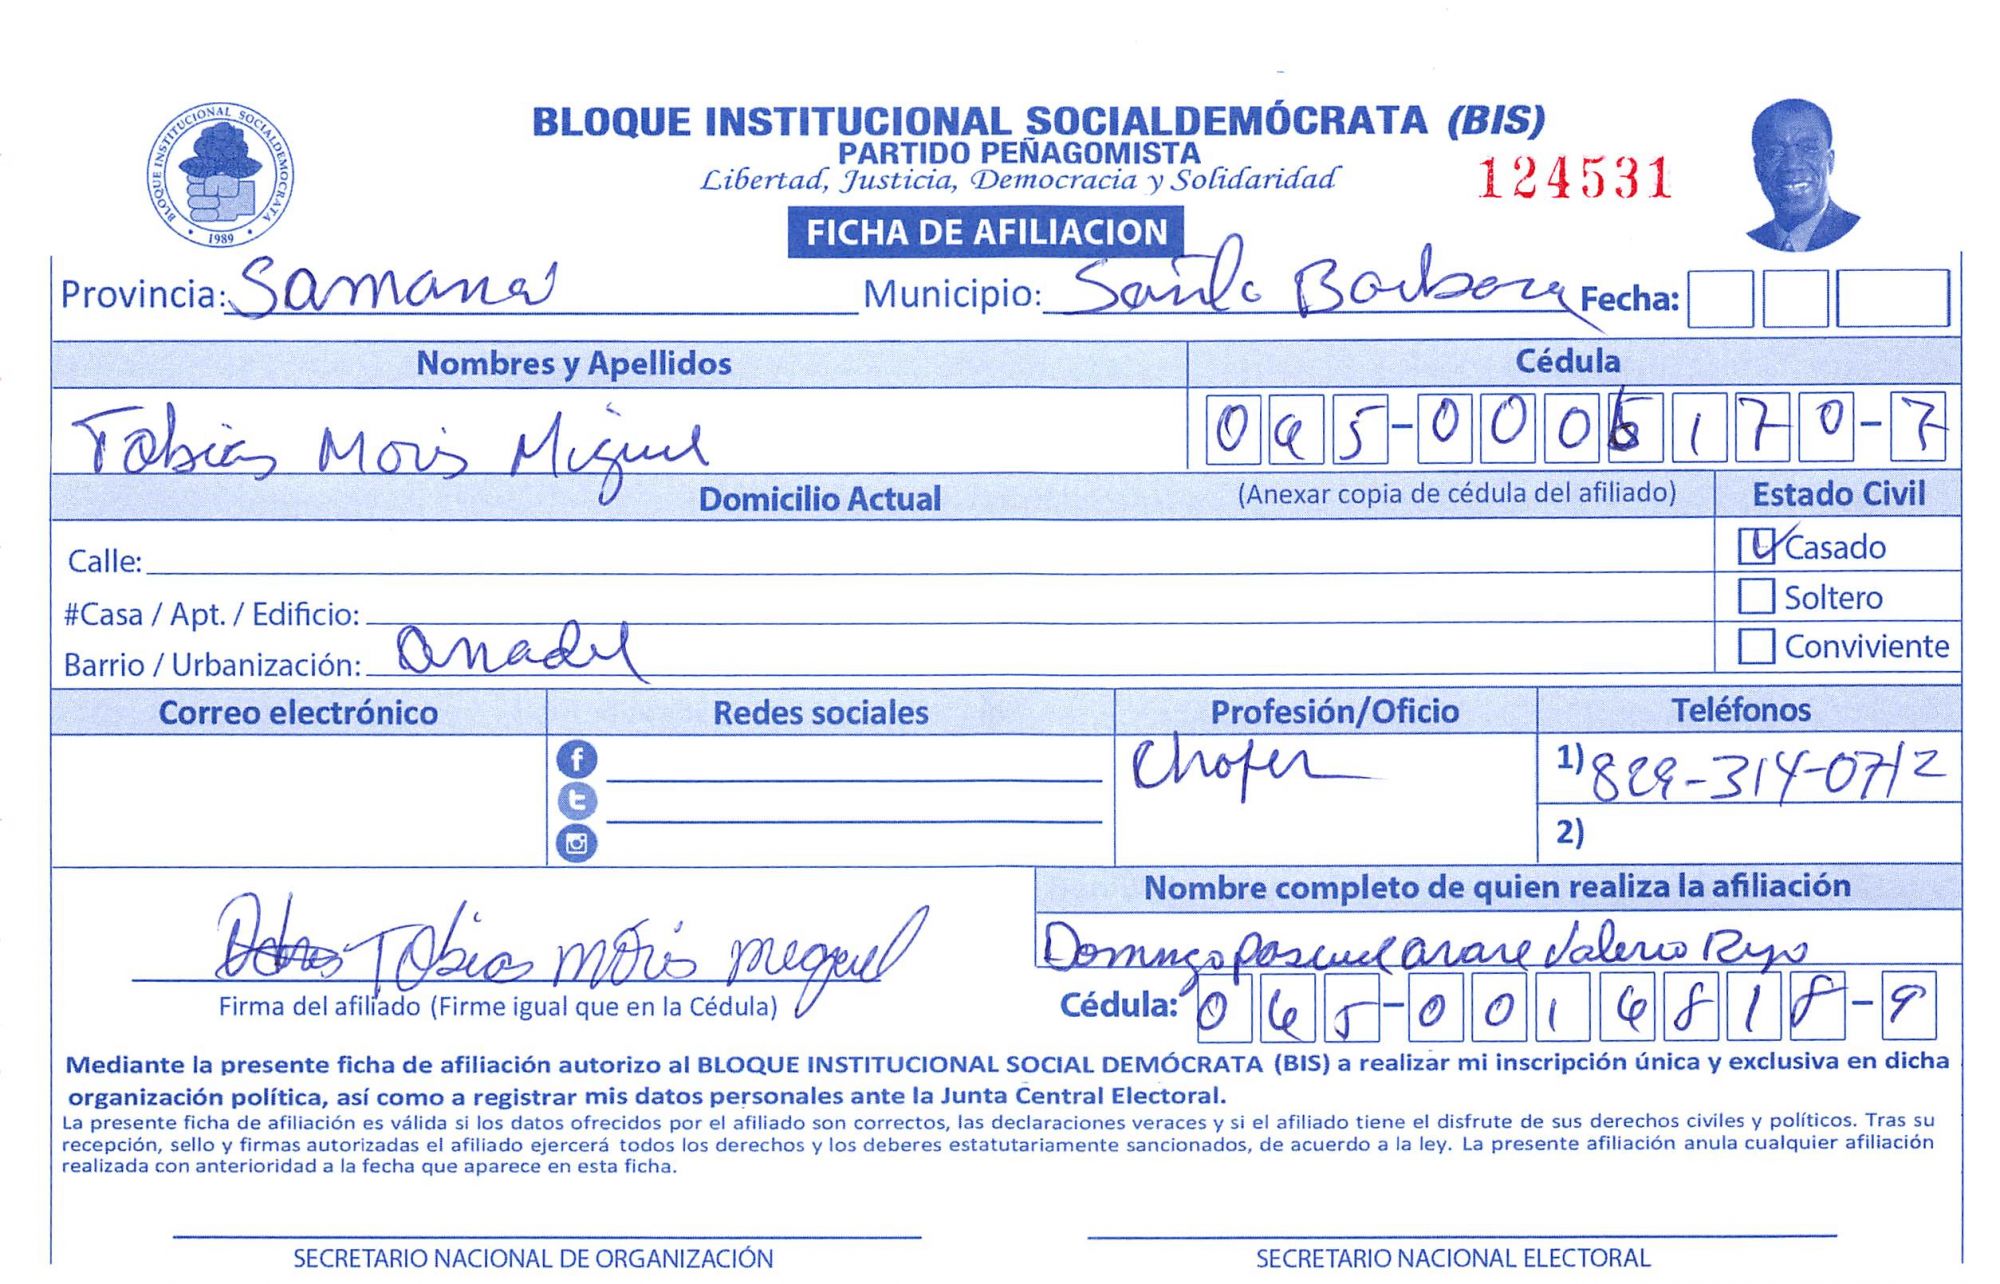 BLOQUE INSTITUCIONAL SOCIALDEMOCRATA
1989
BLOQUE INSTITUCIONAL SOCIALDEMÓCRATA (BIS)
PARTIDO PEÑAGOMISTA
Libertad, Justicia, Democracia y Solidaridad
124531
FICHA DE AFILIACION
Provincia: Samaná Municipio: Santa Barbara Fecha:
Nombres y Apellidos Cédula
Tobias Moris Miguel 065-0006170-7
Domicilio Actual (Anexar copia de cédula del afiliado) Estado Civil
Calle: Casado
#Casa / Apt. / Edificio: Soltero
Barrio / Urbanización: Anadel Conviviente
Correo electrónico Redes sociales Profesión/Oficio Teléfonos
Chofer 1) 829-314-0712
2)
Nombre completo de quien realiza la afiliación
Tobias Moris Meguel Domingo Pascual Valerio
Firma del afiliado (Firme igual que en la Cédula) Cédula: 065-0016818-9
Mediante la presente ficha de afiliación autorizo al BLOQUE INSTITUCIONAL SOCIAL DEMÓCRATA (BIS) a realizar mi inscripción única y exclusiva en dicha
organización política, así como a registrar mis datos personales ante la Junta Central Electoral.
La presente ficha de afiliación es válida si los datos ofrecidos por el afiliado son correctos, las declaraciones veraces y si el afiliado tiene el disfrute de sus derechos civiles y políticos. Tras su
recepción, sello y firmas autorizadas el afiliado ejercerá todos los derechos y los deberes estatutariamente sancionados, de acuerdo a la ley. La presente afiliación anula cualquier afiliación
realizada con anterioridad a la fecha que aparece en esta ficha.
SECRETARIO NACIONAL DE ORGANIZACIÓN SECRETARIO NACIONAL ELECTORAL